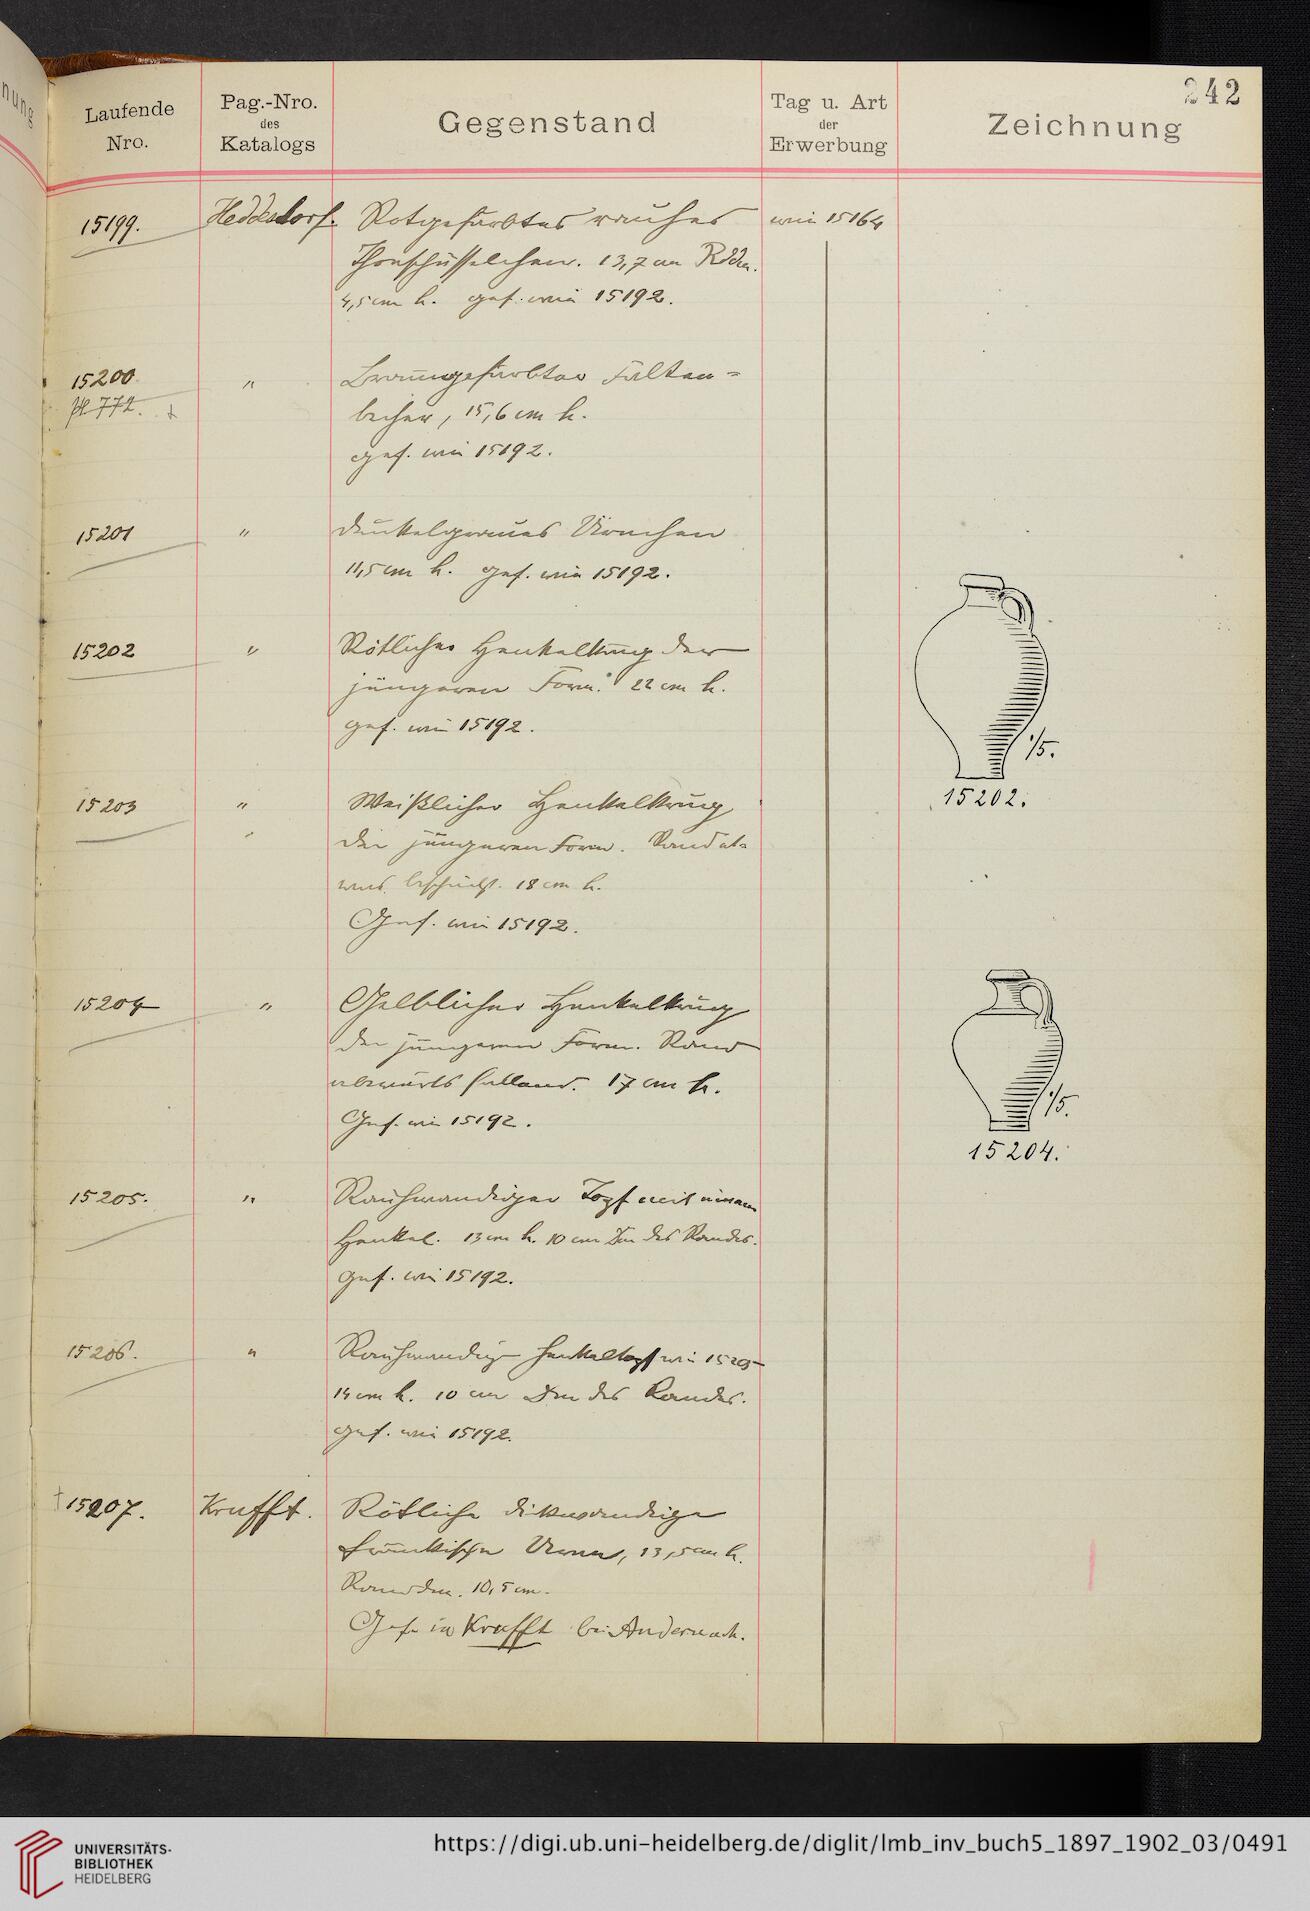 242
Laufende Nro.
Pag.-Nro. des Katalogs
Gegenstand
Tag u. Art der Erwerbung
Zeichnung
15199. Heddesdorf. Rotgefärbtes rauhes wie 15164
Thonschüsselchen. 13,7 cm Rddm.
4,5 cm h. gef. wie 15192.
15200 " Braungefärbter Falten-
772. becher, 15,6 cm h.
gef. wie 15192.
15201 " Dunkelgraues Urnchen
11,5 cm h. gef. wie 15192.
15202 " Rötlicher Henkelkrug der
jüngeren Form. 22 cm h.
gef. wie 15192.
1/5.
15202.
15203 " Weißlicher Henkelkrug
" der jüngeren Form. Rand et-
was 18 cm h.
Gef. wie 15192.
15204 " Gelblicher Henkelkrug
der jüngeren Form. Rand
abwärts fallend. 17 cm h.
Gef. wie 15192.
1/5.
15204.
15205. " Rauhwandiger Topf mit einem
Henkel. 13 cm h. 10 cm Dm des Randes.
gef. wie 15192.
15206. " Rauhwandig Henkeltopf wie 15205
14 cm h. 10 cm Dm des Randes.
gef. wie 15192.
†15207. Krufft. Rötliche dickwandige
fränkische Urne, 13,5 cm h.
Randdm. 10,5 cm.
Gef. in Krufft bei Andernach.
UNIVERSITÄTS-
BIBLIOTHEK
HEIDELBERG
https://digi.ub.uni-heidelberg.de/diglit/lmb_inv_buch5_1897_1902_03/0491